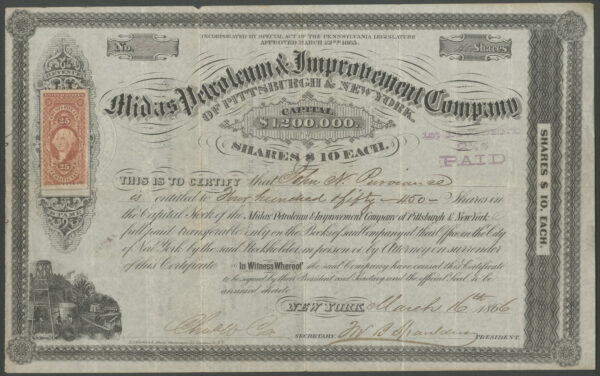 INCORPORATED BY SPECIAL ACT OF THE PENNSYLVANIA LEGISLATURE
APPROVED MARCH 22ND 1865.
No.
Shares
Midas Petroleum & Improvement Company
OF PITTSBURGH & NEW YORK.
CAPITAL
$1,200,000
SHARES $10 EACH.
25
25
2½
PAID
SHARES $10. EACH.
THIS IS TO CERTIFY that John N. Purviance
is entitled to Four hundred & fifty - 450 - Shares in
the Capital Stock of the Midas Petroleum & Improvement Company of Pittsburgh & New York
full paid, transferable only on the Books of said Company at their Office in the City
of New York by the said Stockholder in person or by Attorney on surrender
of this Certificate. In Witness Whereof the said Company have caused this Certificate
to be signed by their President and Secretary and the official Seal to be
annexed
NEW YORK March 16th 1866
SECRETARY
PRESIDENT.